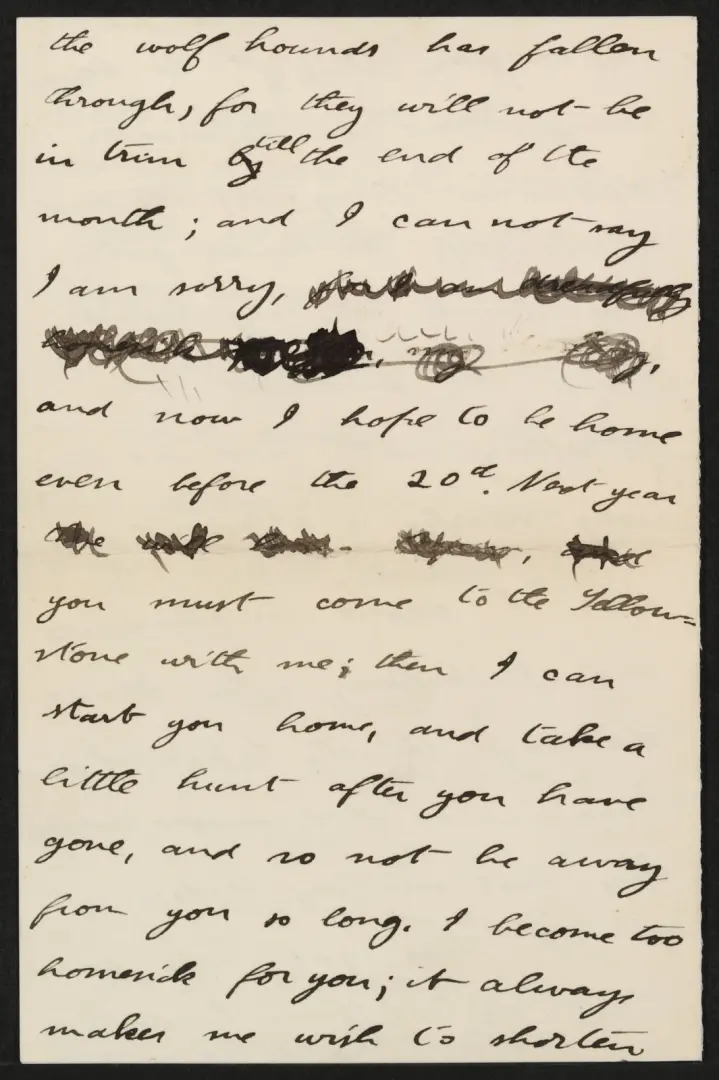 the wolf hounds has fallen
through, for they will not be
in trim till the end of the
month; and I can not say
I am sorry, for I am dreadfully
my
and now I hope to be home
even before the 20d. Next year
you must come to the Yellow=
stone with me; then I can
start you home, and take a
little hunt after you have
gone, and so not be away
from you so long. I become too
homesick for you; it always
makes me wish to shorten